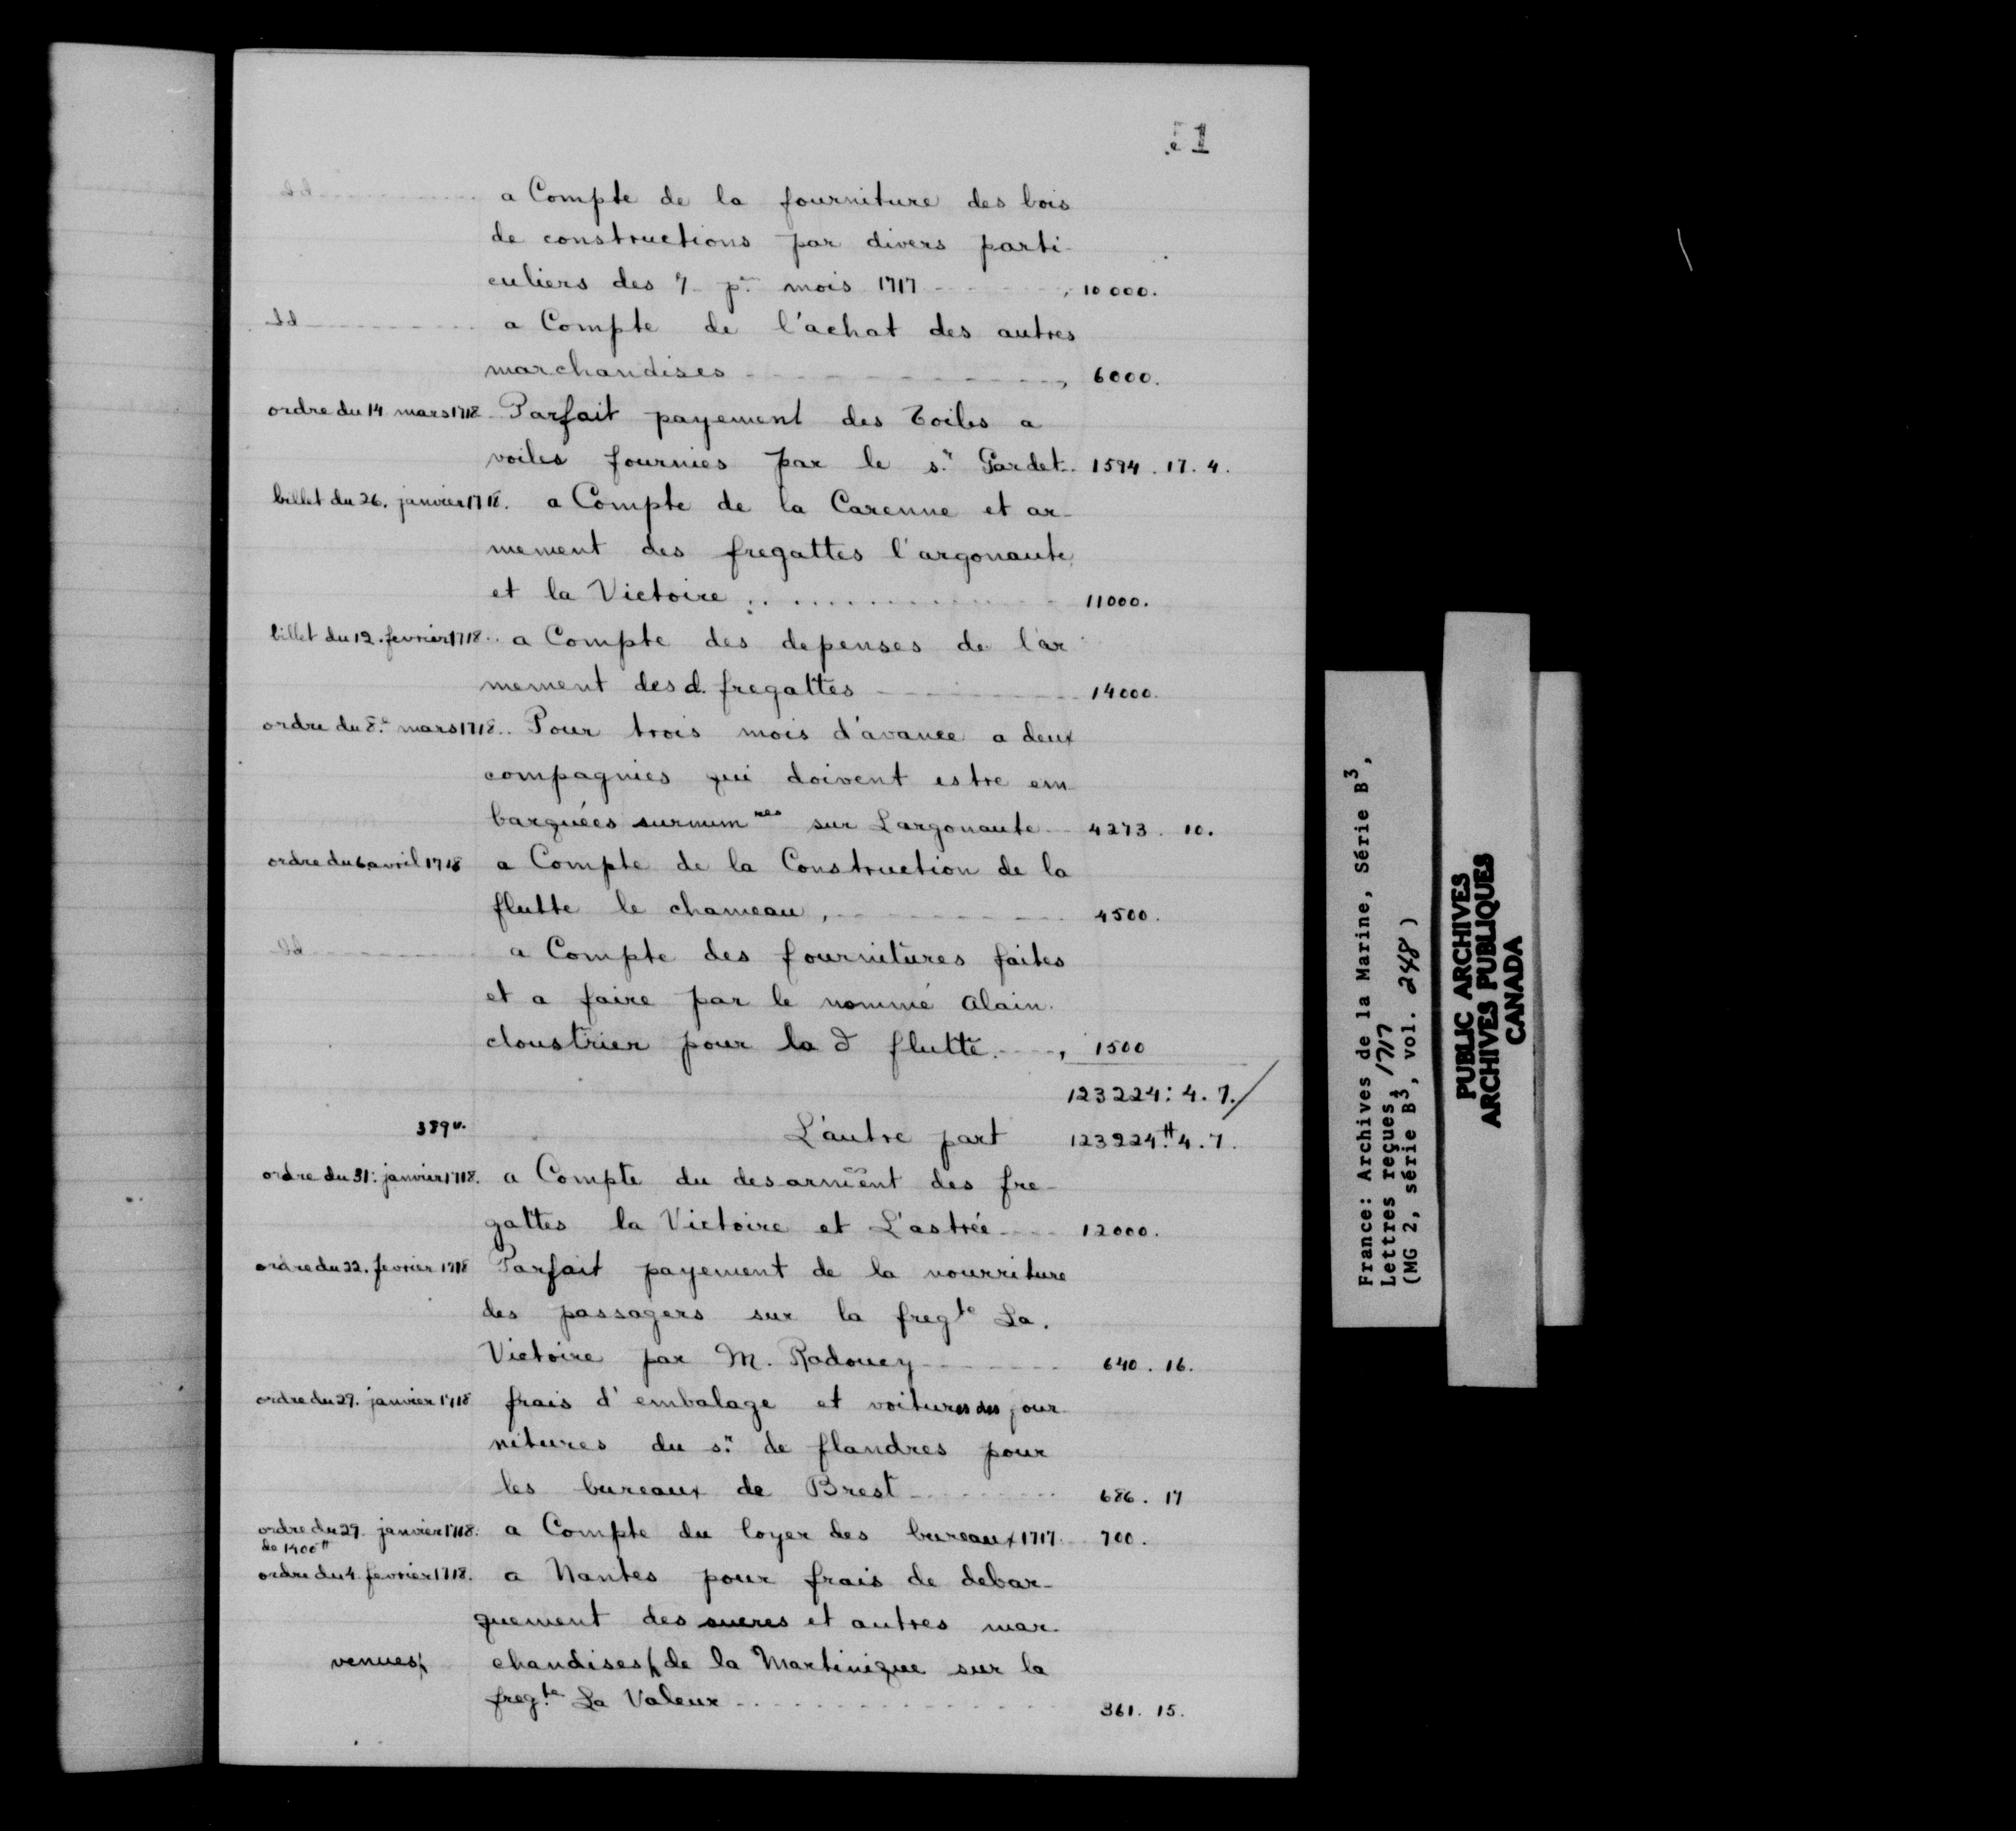 1
dd a Compte de la fourniture des bois
de constructions par divers parti-
culiers des 7 p.rs mois 1717 10000.
dd a Compte de l'achat des autres
marchandises 6000.
ordre du 14 mars 1718 Parfait payement des toiles a
voiles fournies par le s.r Gardet 1594. 17. 4.
billet du 26. janvier 1718. a Compte de la Carenne et ar-
mement des fregattes l'argonaute
et la Victoire 11000.
billet du 12. fevrier 1718. a Compte des depenses de l'ar
mement des d. fregattes 14000.
ordre du 8.e mars 1718. Pour trois mois d'avance a deux
compagnies qui doivent estre em-
barquées surnum res sur Largonaute 4273. 10.
ordre du 6 avril 1718 a Compte de la Construction de la
flutte le chameau, 4500.
dd a Compte des fournitures faites
et a faire par le nommé Alain
cloustrier pour la d flutte 1500
123224: 4. 7./
389v. L'autre part 123224.tt 4. 7.
ordre du 31: janvier 1718. a Compte du desarmẽnt des fre-
gattes la Victoire et L'astrée 12000.
ordre du 22. fevrier 1718 Parfait payement de la nourriture
des passagers sur la freg te La.
Victoire par M. Radouey 640. 16.
ordre du 29. janvier 1718 frais d'embalage et voitures des four
nitures du s.r de flandres pour
les bureaux de Brest 686. 17
ordre du 29. janvier 1718. a Compte du loyer des bureaux 1717. 700.
de 1400 tt
ordre du 4. fevrier 1718. a Nantes pour frais de debar-
quement des sucres et autres mar-
venues/ chandises/ de la Martinique sur la
freg.te La Valeur 361. 15.
France: Archives de la Marine, Série B3,
Lettres reçues, 1717
(MG 2, série B3, vol. 248)
PUBLIC ARCHIVES
ARCHIVES PUBLIQUES
CANADA